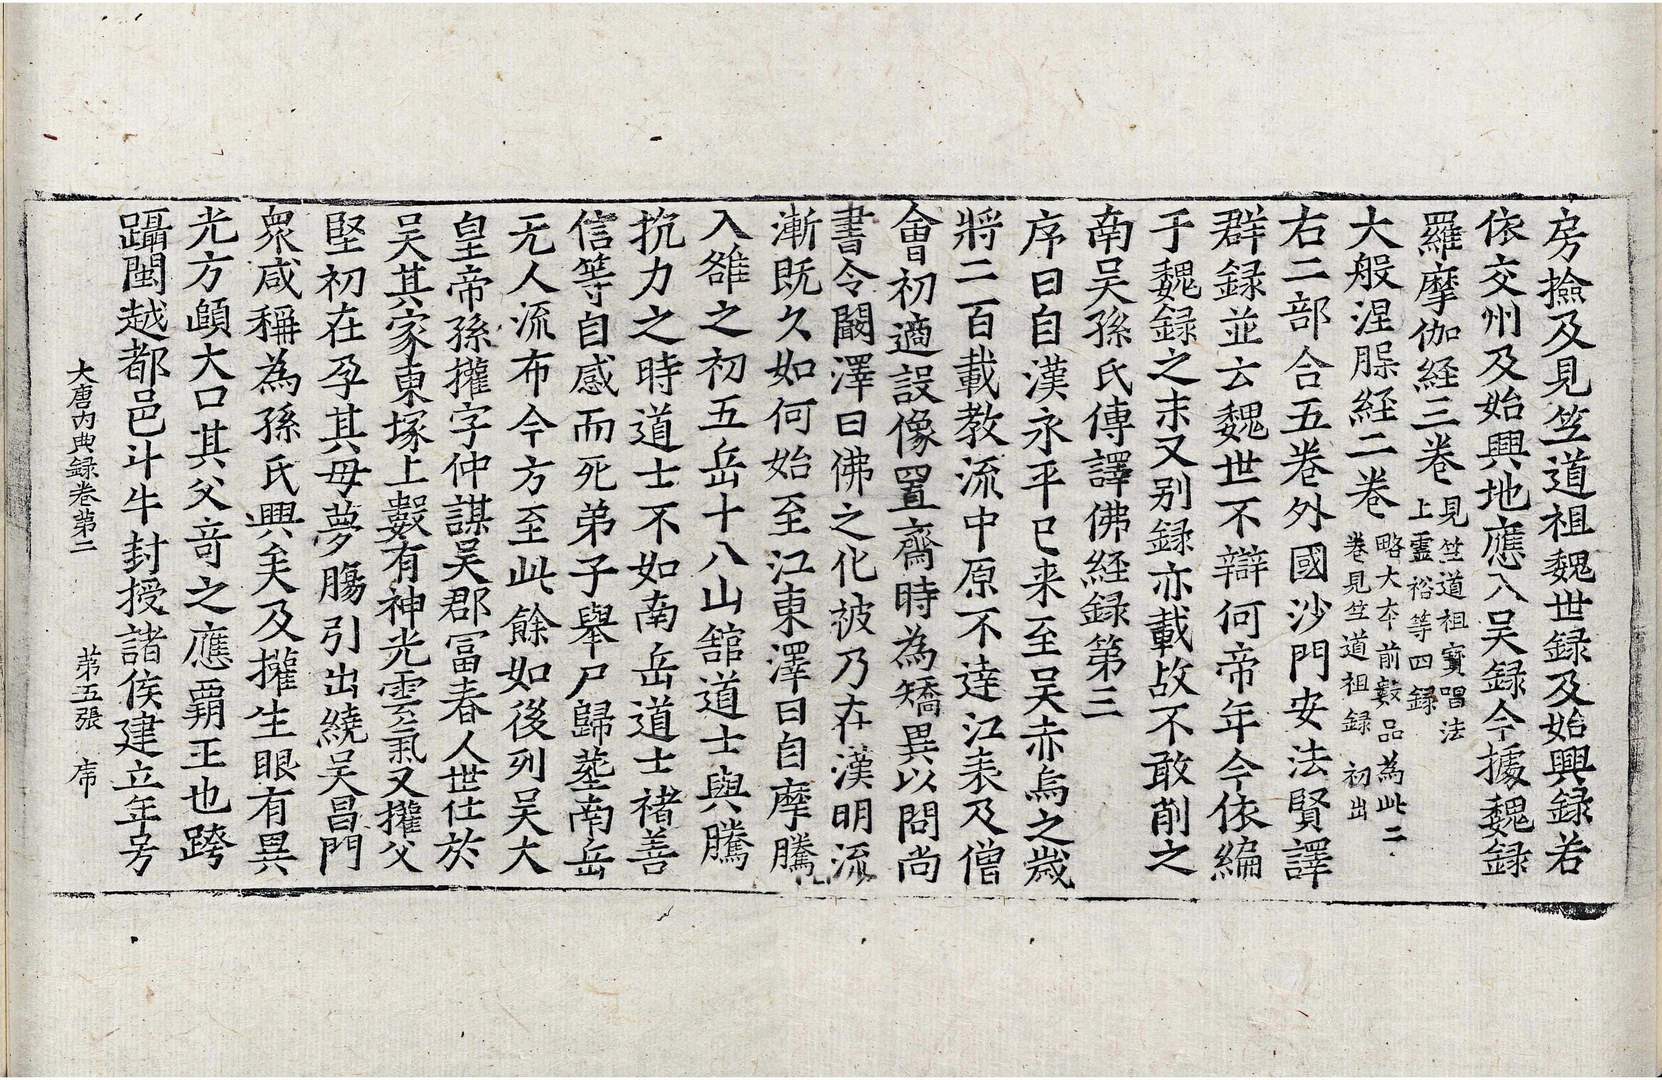 房撿及見笠道祖魏世録及始興録若
依交州及始興地應入吴録今據魏録
羅摩伽経三卷見竺道祖寳唱法
上靈裕等四録
大般涅槃経二卷略大夲前數品為此二
卷見竺道祖録 初出
右二部合五卷外國沙門安法賢譯
群録並云魏世不辯何帝年今依編
于魏録之末又别録亦載故不敢削之
南吴孫氏傳譯佛経録第三
序曰自漢永平已来至吴赤烏之歲
將二百載教流中原不達江表及僧
會初適設像置齋時為矯異以問尚
書令闞澤曰佛之化被乃在漢明流
漸既久如何始至江東澤曰自摩騰
入雒之初五岳十八山舘道士與騰
抗力之時道士不如南岳道士褚善
信等自感而死弟子舉尸歸塟南岳
无人流布今方至此餘如後列吴大
皇帝孫權字仲謀吴郡冨春人世仕於
吴其家東塚上數有神光雲氣又權父
堅初在孕其母夢膓引出繞吴昌門
衆咸稱為孫氏興矣及權生眼有異
光方頤大口其父竒之應覇王也跨
躡閩越都邑斗牛封授諸侯建立年号
大唐内典録卷第二 苐五張 席